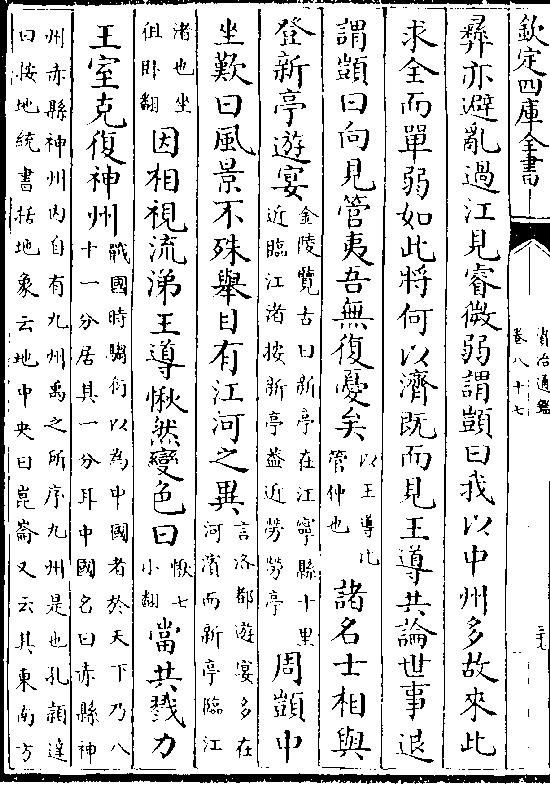 欽定四庫全書
資治通鑑
卷八十七
彞亦避亂過江見睿微弱謂顗曰我以中州多故來此
求全而單弱如此將何以濟既而見王導共論世事退
謂顗曰向見管夷吾無復憂矣以王導比管仲也諸名士相與
登新亭遊宴金陵覽古曰新亭在江寧縣十里近臨江渚按新亭葢近勞勞亭周顗中
坐歎曰風景不殊舉目有江河之異言洛都遊宴多在河濱而新亭臨江
渚也坐徂卧翻因相視流涕王導愀然變色曰愀七小翻當共戮力
王室克復神州戰國時騶衍以為中國者於天下乃八十一分居其一分耳中國名曰赤縣神
州赤縣神州内自有九州禹之所序九州是也孔頴達曰按地統書括地象云地中央曰崑崙又云其東南方